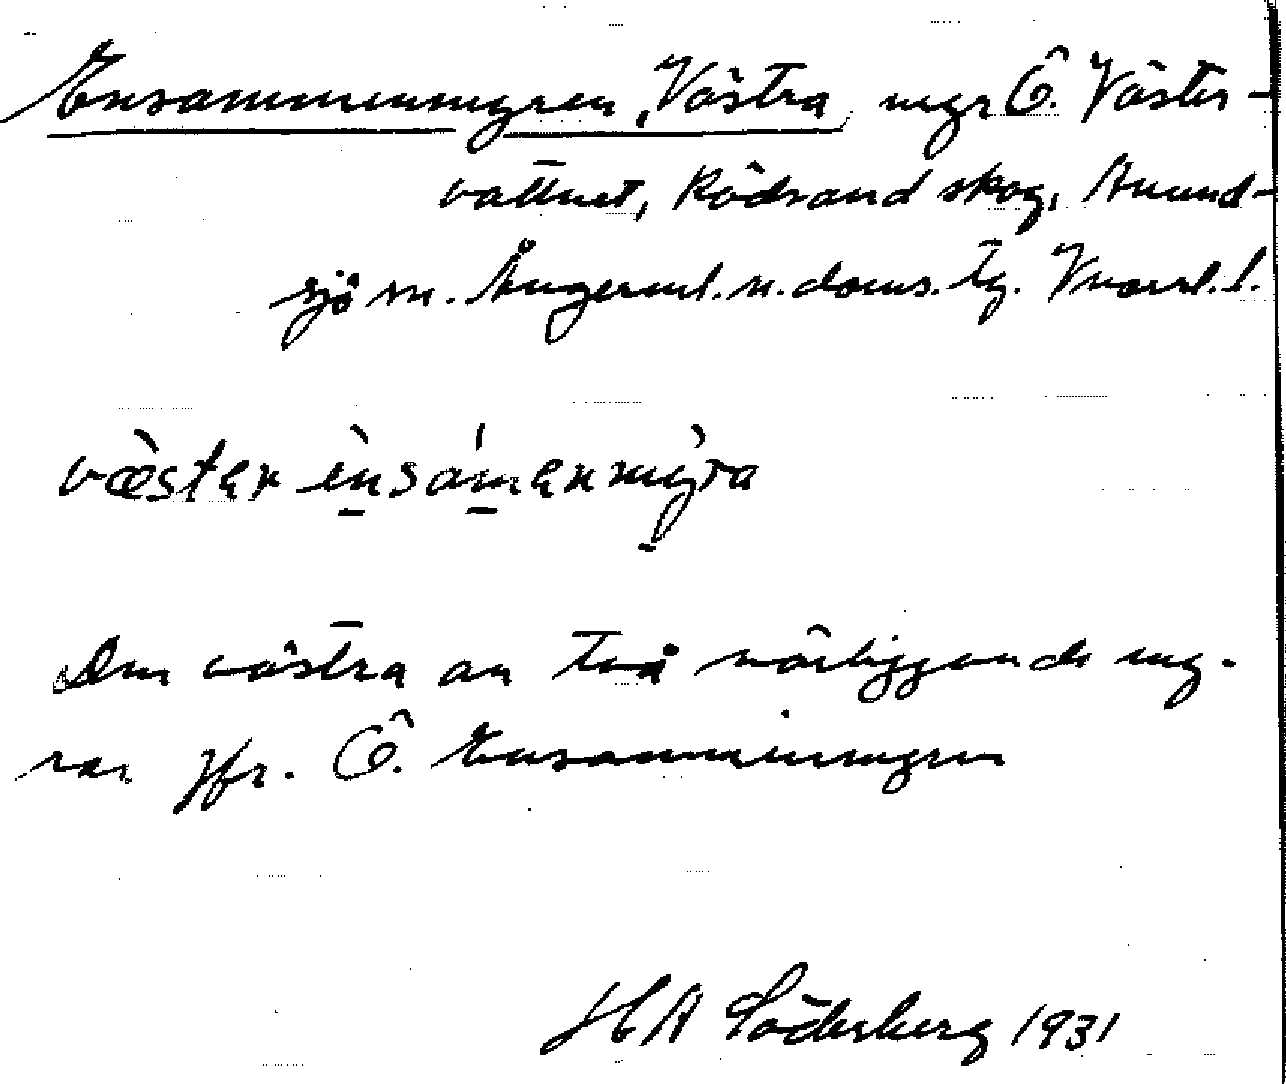 Ensammenmyren, Västra, myr Ö. Väster-
vattnet, Rödvand skog, Anund-
sjö sn. Ångerml. n. doms. tg. Vnorrl. l.
vœ̀stęr ènsámęnmyra
Den västra av två närliggande my-
rar Jfr. Ö. Ensammenmyren
H A Söderberg 1931